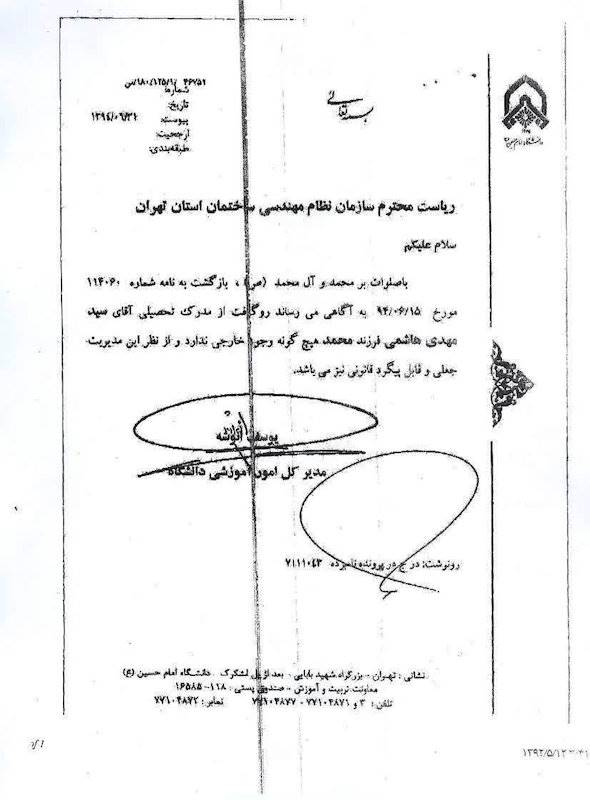 بسمه تعالی
شماره:
۱۸۰/۱۲۵/۱/ ۴۶۷۵۲
تاریخ:
پیوست: ۱۳۹۴/۰۶/۳۱
ارجحیت:
طبقه‌بندی:
ریاست محترم سازمان نظام مهندسی ساختمان استان تهران
سلام علیکم
باصلوات بر محمد و آل محمد (ص) ، بازگشت به نامه شماره ۱۱۴۰۶۰
مورخ ۹۴/۰۶/۱۵ به آگاهی می رساند روگرفت از مدرک تحصیلی آقای سید
مهدی هاشمی فرزند محمد هیچ گونه وجود خارجی ندارد و از نظر این مدیریت
جعلی و قابل پیگرد قانونی نیز می باشد.
یوسف
مدیر کل امور آموزشی دانشگاه
رونوشت: درج در پرونده نامبرده ۷۱۱۱۰۴۳
نشانی : تهران - بزرگراه شهید بابایی - بعد از پل لشگرک - دانشگاه امام حسین (ع)
معاونت تربیت و آموزش - صندوق پستی : ۱۱۸-۱۶۵۸۵
تلفن : ۳ و ۷۷۱۰۴۸۷۱ - ۷۷۱۰۴۸۷۷ نمابر : ۷۷۱۰۴۸۷۲